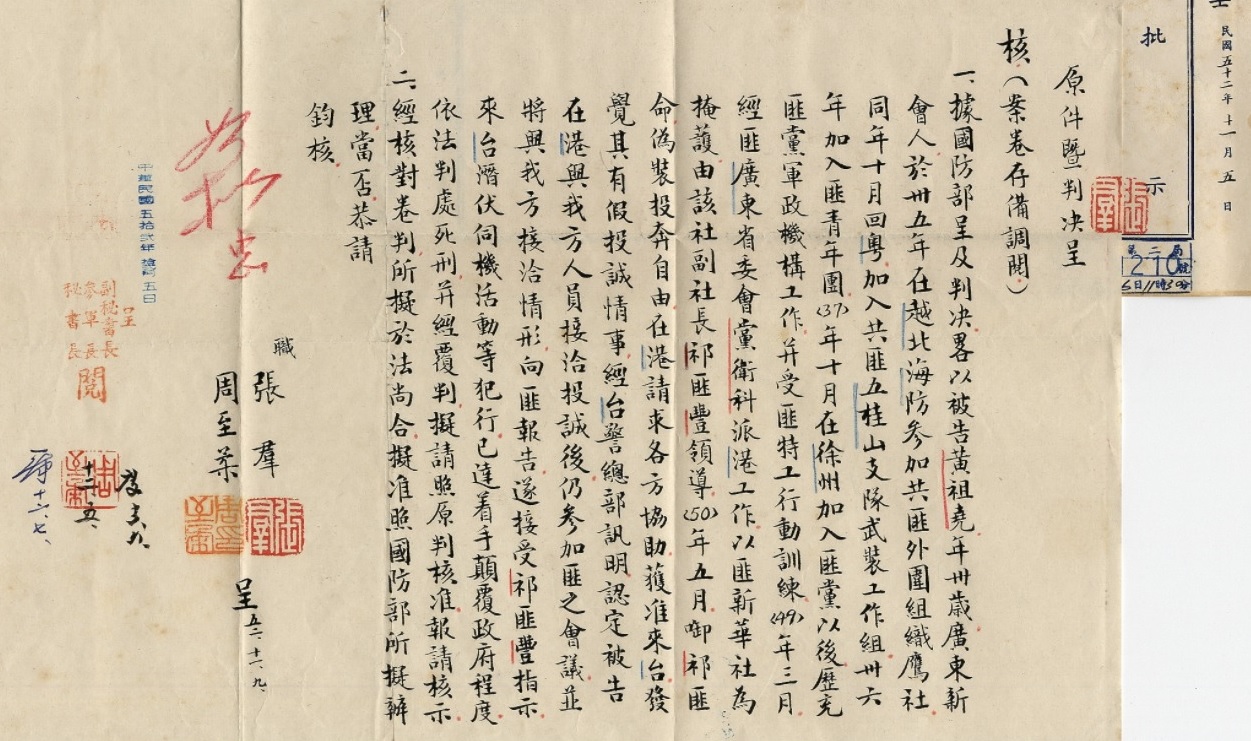 民國五十二年十一月五日
批示
第二局
210號
6日11時50分
原件暨判決呈
核（案卷存備調閱）
一、據國防部呈及判决畧以被告黃祖堯年卅歲廣東新
會人於卅五年在越北海防參加共匪外圍組織鷹社
同年十月回粵加入共匪五桂山支隊武裝工作組卅六
年加入匪青年團(37)年十月在徐州加入匪黨以後歷充
匪黨軍政機構工作并受匪特工行動訓練(49)年三月
經匪廣東省委會黨衛科派港工作以匪新華社為
掩護由該社副社長祁匪豐領導(50)年五月啣祁匪
命偽裝投奔自由在港請求各方協助獲准來台發
覺其有假投誠情事經台警總部訊明認定被告
在港與我方人員接洽投誠後仍參加匪之會議並
將與我方接洽情形向匪報告遂接受祁匪豐指示
來台潛伏伺機活動等犯行已達着手顛覆政府程度
依法判處死刑并經覆判擬請照原判核准報請核示
二、經核對卷判所擬於法尚合擬准照國防部所擬辦
理當否恭請
鈞核
職 張羣
周至柔
呈 五二、十一、九、
張羣
如擬
中華民國五拾弍年拾弍月五日
呈
副秘書長
參軍長
秘書長
閱
十二、五
十二、七、